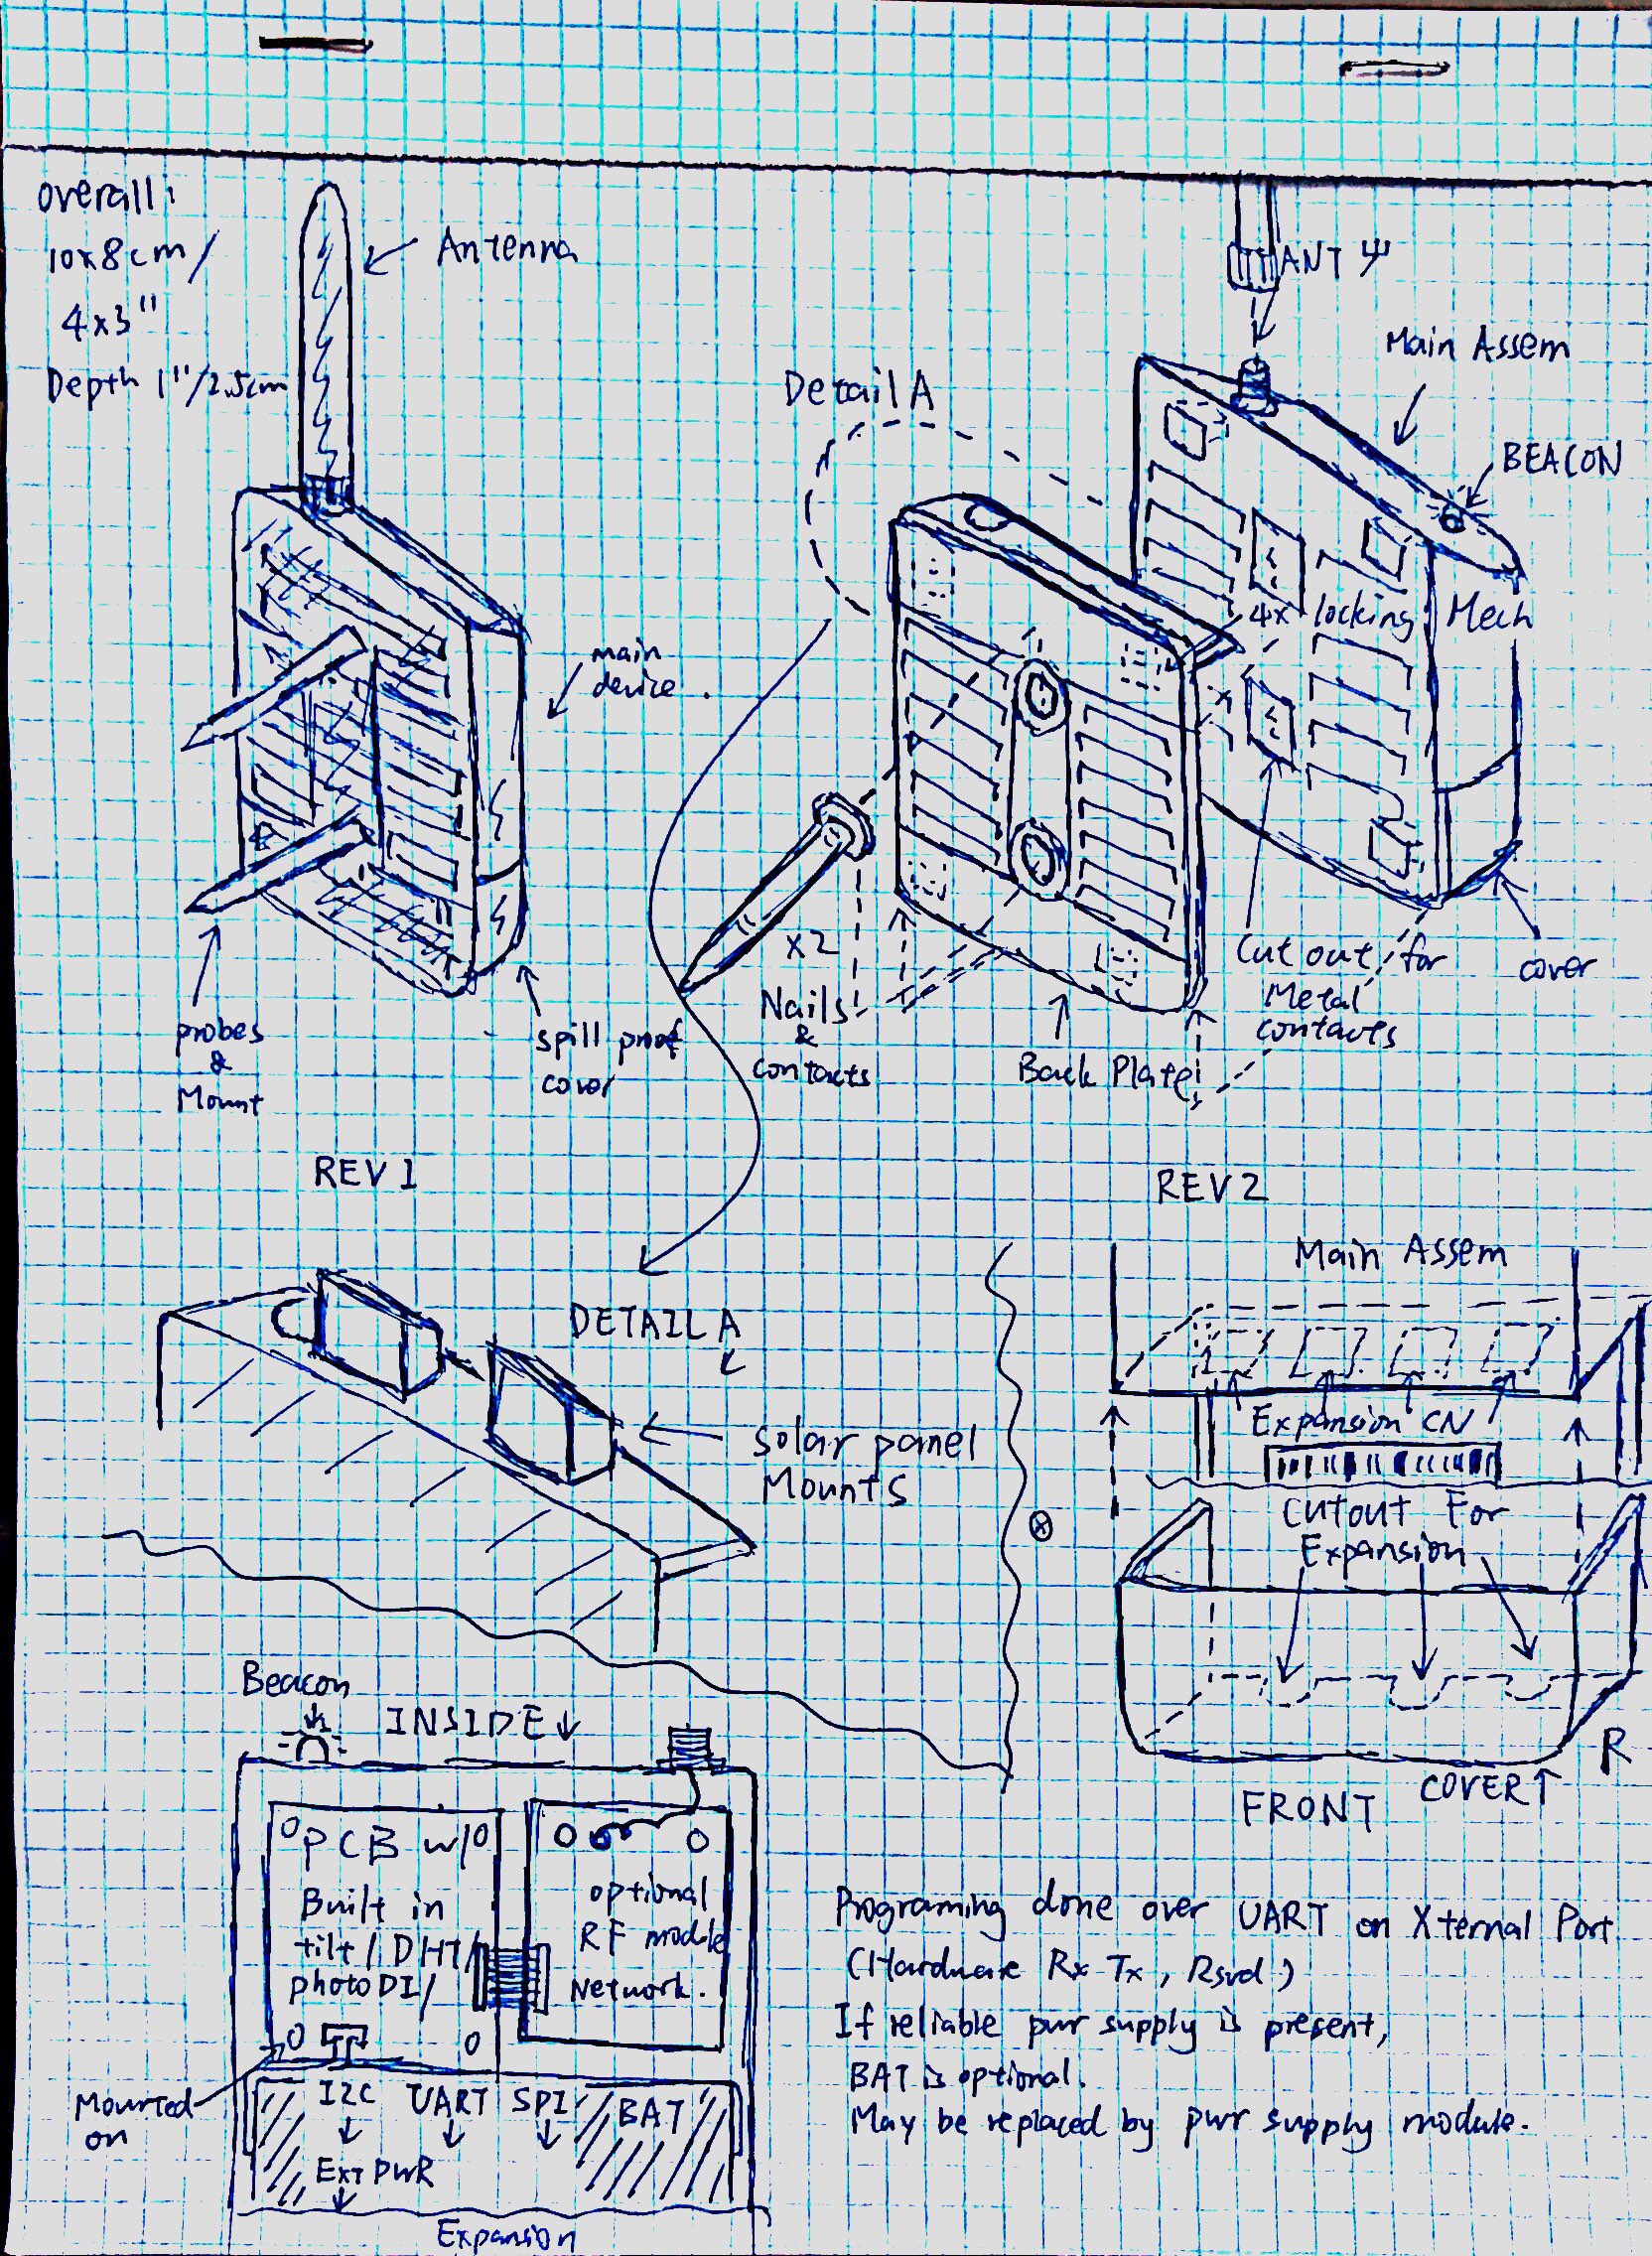 Overall:
10x8cm/
4x3"
Depth 1"/2.5cm
Antenna
main
device.
probes
&
Mount
spill proof
cover
REV 1
ANT
Main Assem
Detail A
BEACON
4x locking Mech
x2
Nails
&
contacts
Back Plate
Cut out for
Metal
contacts
cover
REV 2
DETAIL A
solar panel
Mounts
Main Assem
Expansion CN
Cutout For
Expansion
R
COVER
FRONT
Beacon
INSIDE
PCB w/
Built in
tilt/DHT/
photoDI/
optional
RF module
Network.
Mounted
on
I2C UART SPI BAT
Ext PWR
Expansion
Programing done over UART on Xternal Port
(Hardware Rx Tx, Rsvd)
If reliable pwr supply is present,
BAT is optional.
May be replaced by pwr supply module.